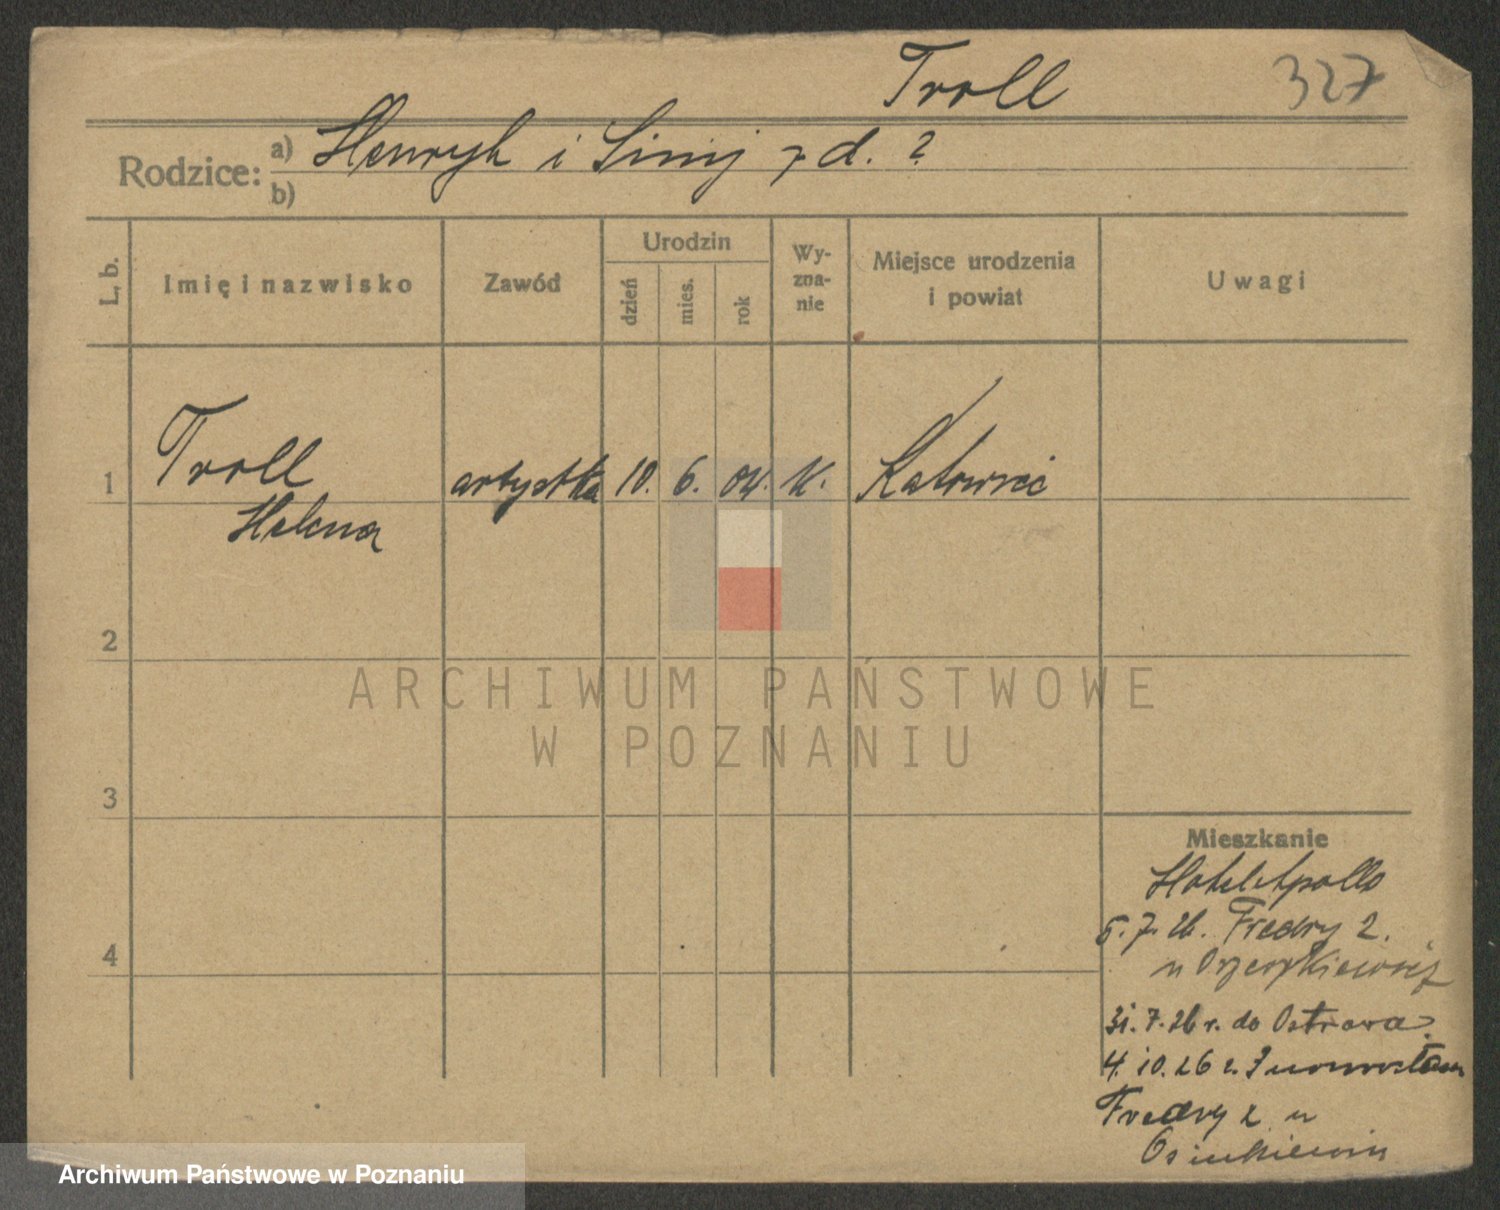 Troll 327
Rodzice: a) Henryk i z d. ?
b)
L. b. Imię i nazwisko Zawód Urodzin dzień mies. rok Wyznanie Miejsce urodzenia i powiat Uwagi
1 Troll artystka 10. 6. 04. K.
Helena
2
3
4
Mieszkanie
Hotel Apollo
5. 7. 26. Fredry 2.
u
31. 7. 26 r. do Ostrowa
4. 10. 26 z
Fredry 2 u
ARCHIWUM PAŃSTWOWE
W POZNANIU
Archiwum Państwowe w Poznaniu